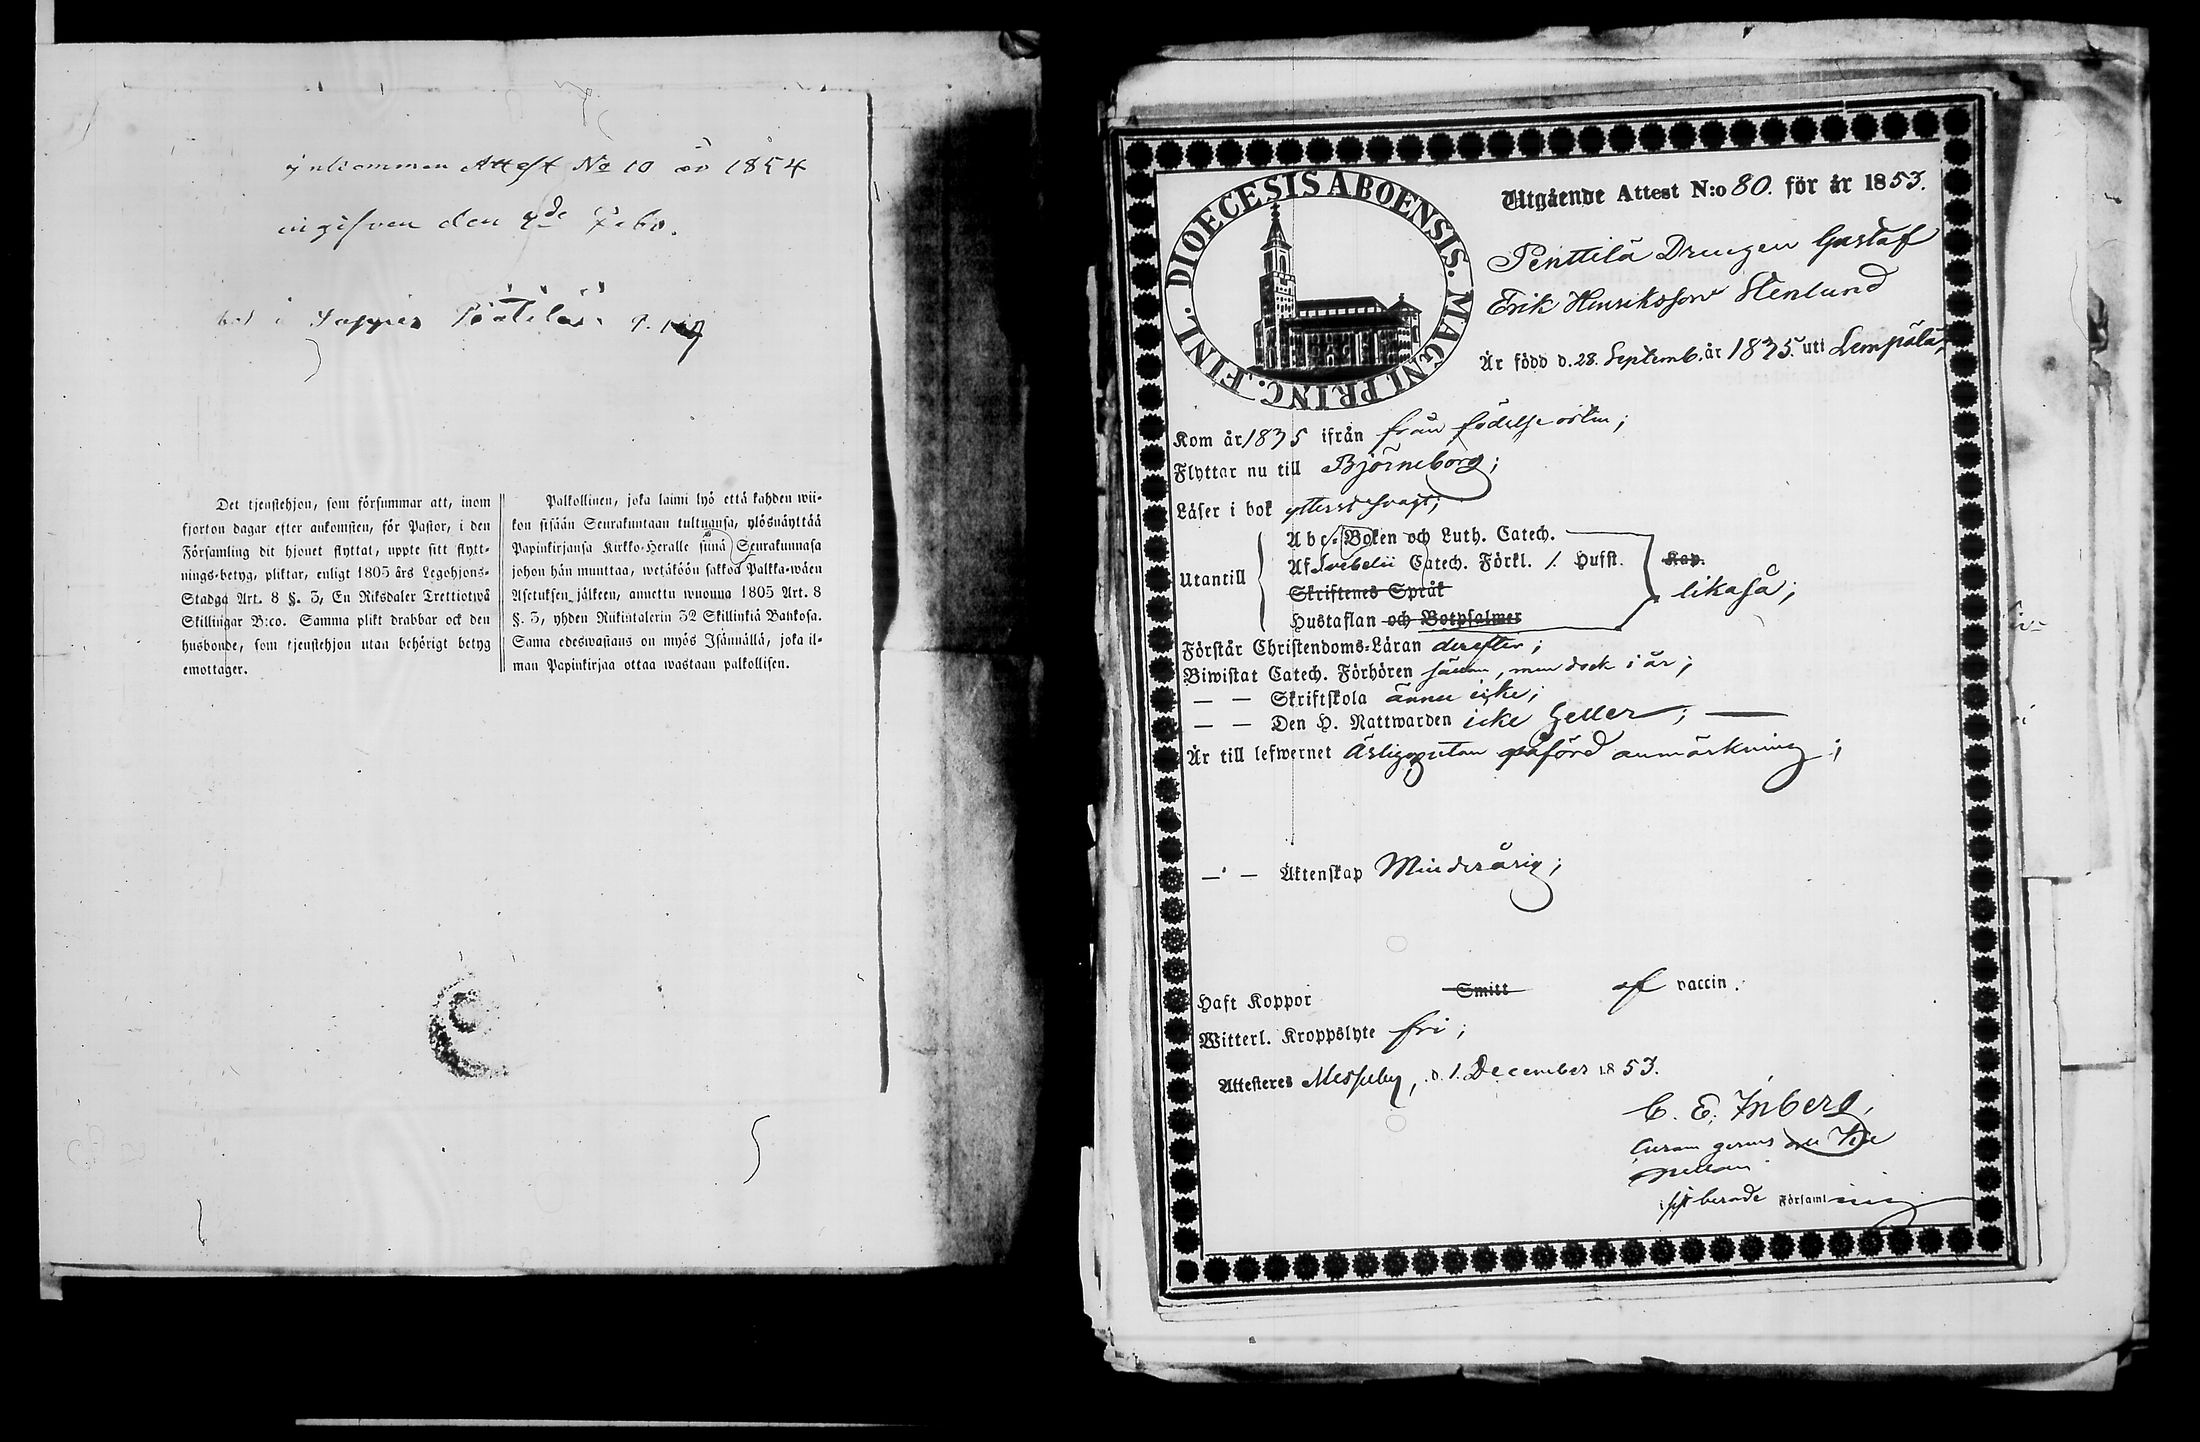 Inkommen Attest No 10 år 1854
ingifven den
Det tjenstehjon, som försummar att, inom
fjorton dagar efter ankomsten, för Pastor, i den
Församling dit hjonet flyttat, uppte sitt flytt-
nings-betyg, pliktar, enligt 1805 års Legohjons-
Stadga Art. 8 §. 3, En Riksdaler Trettiotwå
Skillingar B:co. Samma plikt drabbar ock den
husbonde, som tjenstehjon utan behörigt betyg
emottager.
Palkollinen, joka laimi lyö että kahden wii-
kon sisään Seurakuntaan tultuansa, ylösnäyttää
Papinkirjansa Kirkko-Heralle siinä Seurakunnasa
johon hän muuttaa, wetäköön sakkoa Palkka-wäen
Asetuksen jälkeen, annettu wuonna 1805 Art. 8
§. 3, yhden Riikintalerin 32 Skillinkiä Bankosa.
Sama edeswastaus on myös Isännällä, joka il-
man Papinkirjaa ottaa wastaan palkollisen.
DIOECESIS ABOENSIS. MAGNI PRINC. FINL.
Utgående Attest N:o 80. för år 1853.
Penttilä Drengen Gustaf
Erik Henriksson Stenlund
Är född d. 28. Septemb. år 1835. uti Lempälä;
Kom år 1835 ifrån från födelse orten;
Flyttar nu till Björneborg;
Läser i bok ytterst svagt;
Utantill
Abc-Boken och Luth. Catech.
Af Svebelii Catech. Förkl. /. Husst.
Skriftenes Språk
Hustaflan och Botpsalmer
Kap.
likaså;
Förstår Christendoms-Läran derefter;
Biwistat Catech. Förhören sällan, men dock i år;
— — Skriftskola ännu icke;
— — Den H. Nattwarden icke heller; —
Är till lefwernet ärlig utan påförd anmärkning;
— — Äktenskap Minderårig;
Haft Koppor Smitt af vaccin.
Witterl. Kroppslyte fri;
Attesteres Messuby, d. 1. December 1853.
C. E. Inberg,
Curam gerens
i sjelf berörde Församling